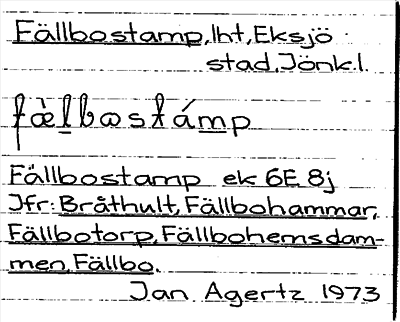 Fällbostamp, lht, Eksjö
stad, Jönk.l.
fæ̀lbωstámp
Fällbostamp ek 6E 8j
Jfr: Bråthult, Fällbohammar,
Fällbotorp, Fällbohemsdam-
men, Fällbo.
Jan Agertz 1973